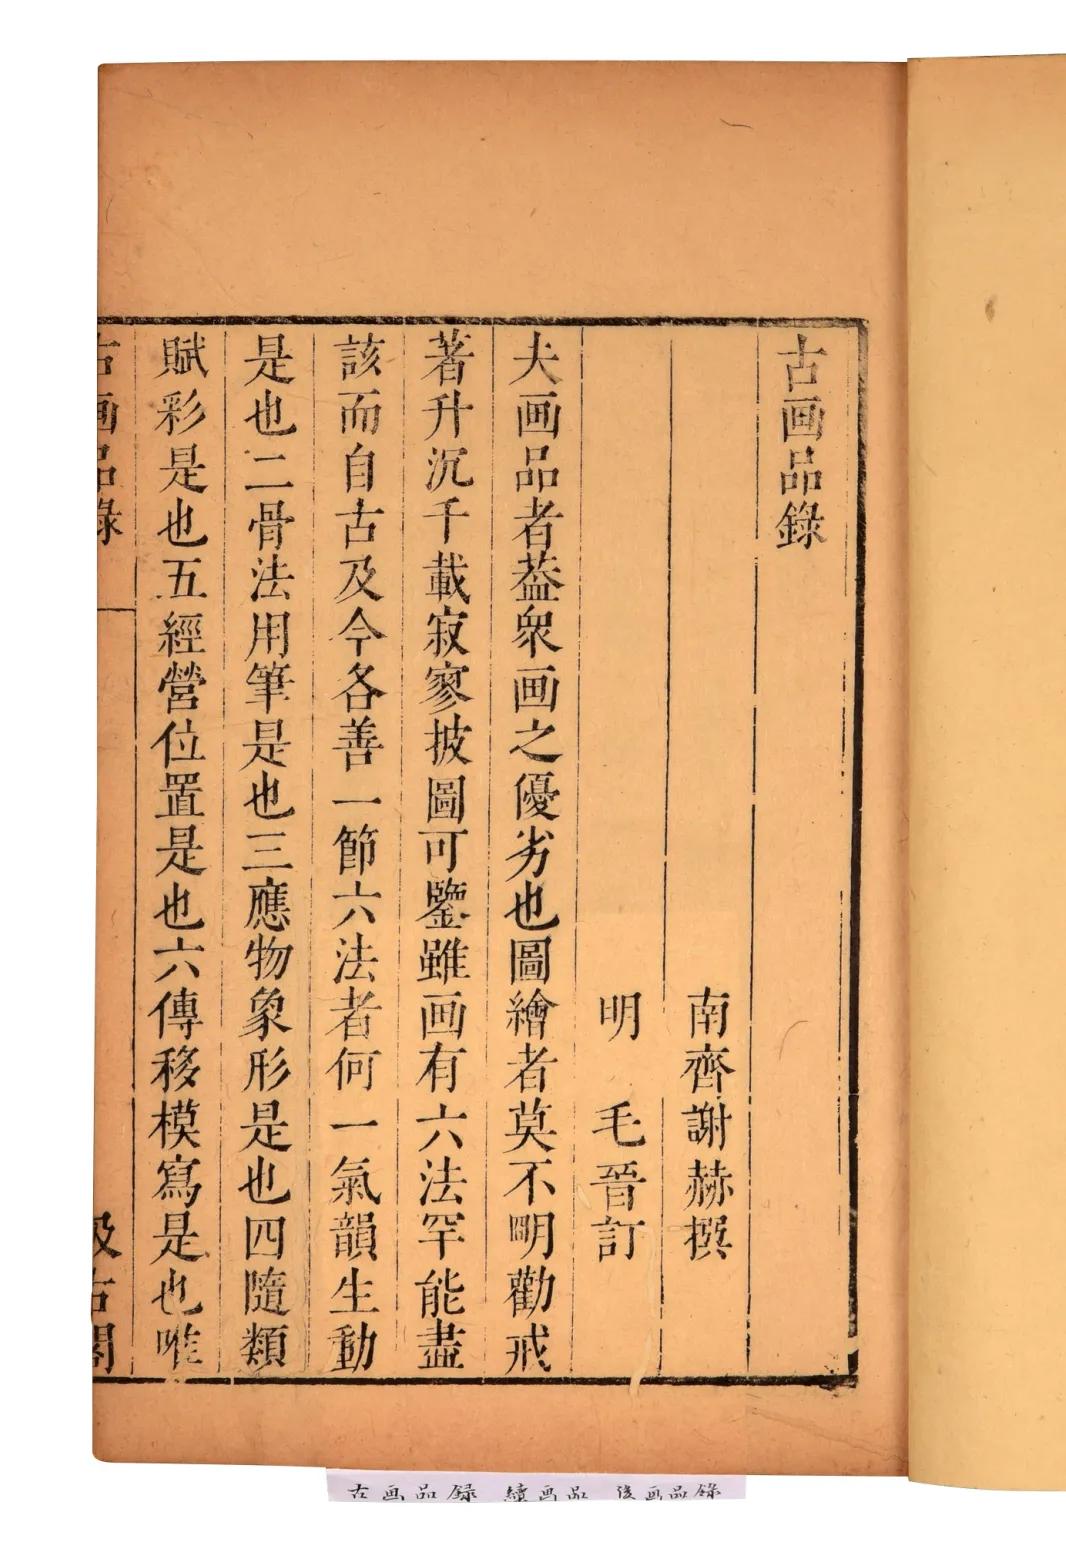 古画品錄
南齊謝赫撰
明 毛晉訂
夫画品者葢衆画之優劣也圖繪者莫不明勸戒
著升沉千載寂寥披圖可鑒雖画有六法罕能盡
該而自古及今各善一節六法者何一氣韻生動
是也二骨法用筆是也三應物象形是也四隨類
賦彩是也五經營位置是也六傳移模寫是也唯
古画品錄
汲古閣
古画品錄 續画品 後画品錄